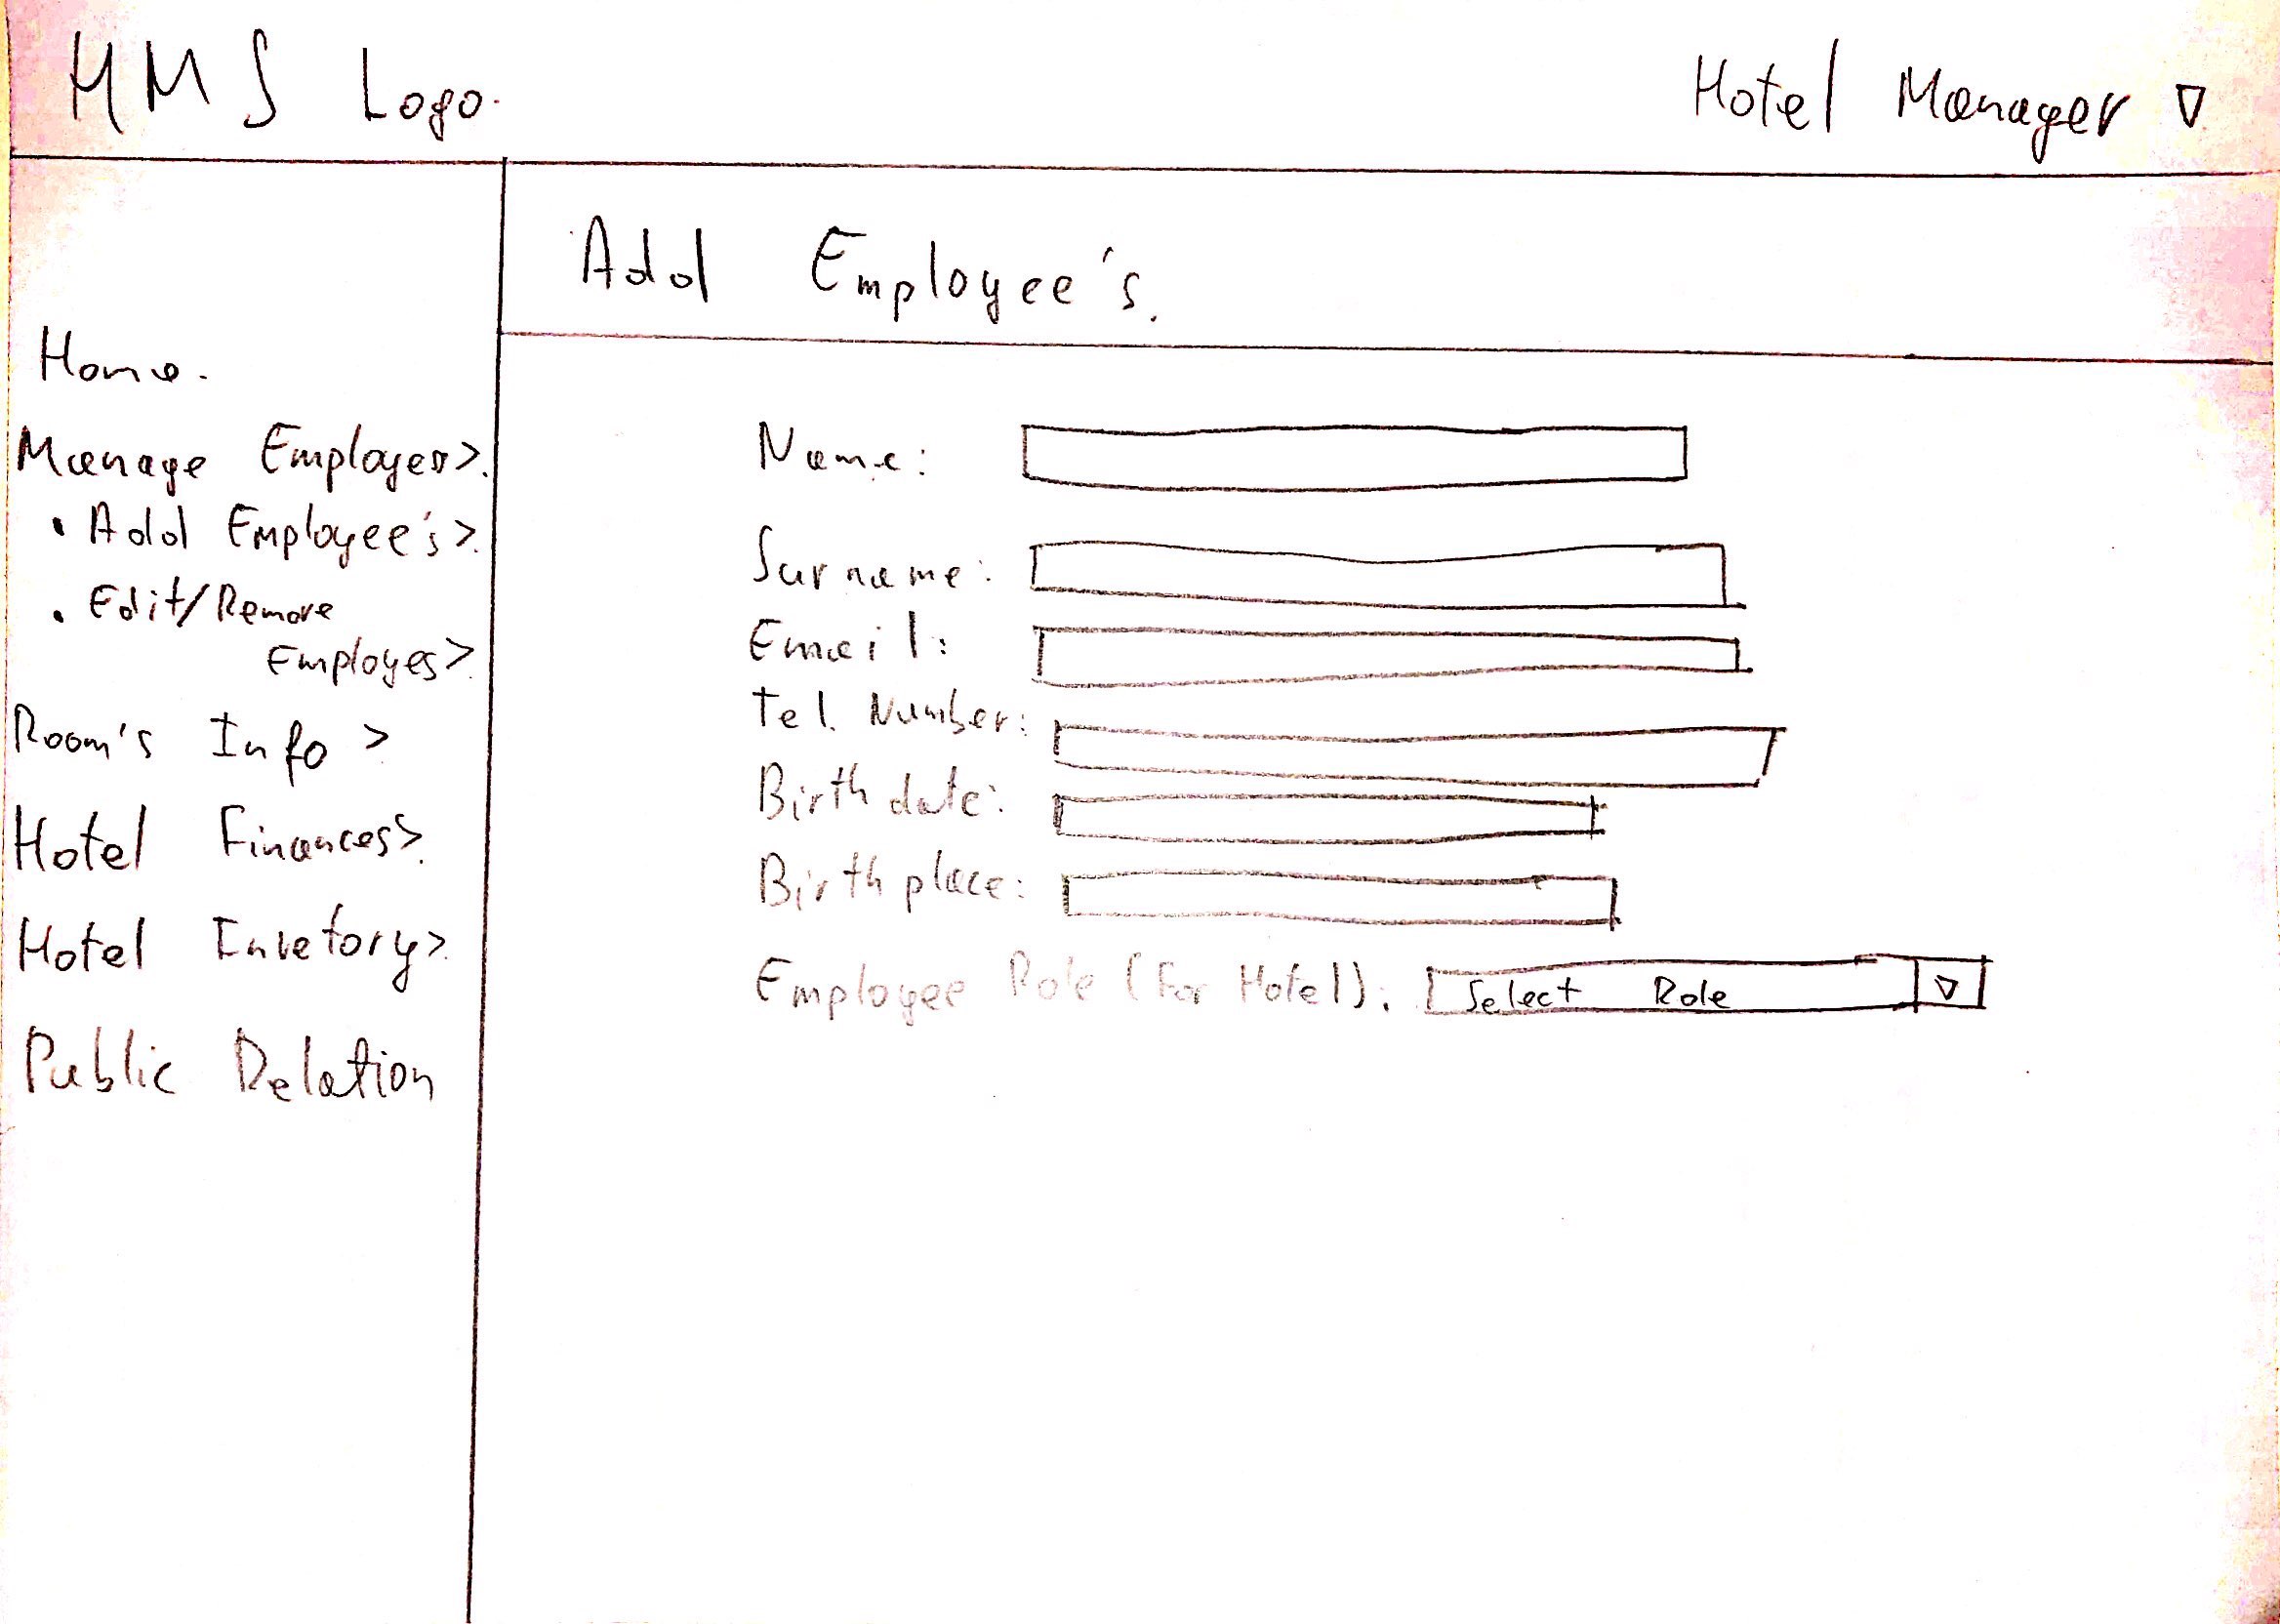 HMS Logo.
Hotel Manager ▽
Add Employee's.
Home.
Manage Employes>.
• Add Employee's>.
• Edit/Remove
Employes>.
Room's Info >
Hotel Finances>.
Hotel Invetory>.
Public Relation
Name:
Surname:
Email:
Tel. Number:
Birth date:
Birth place:
Employee Role (For Hotel): Select Role ▽